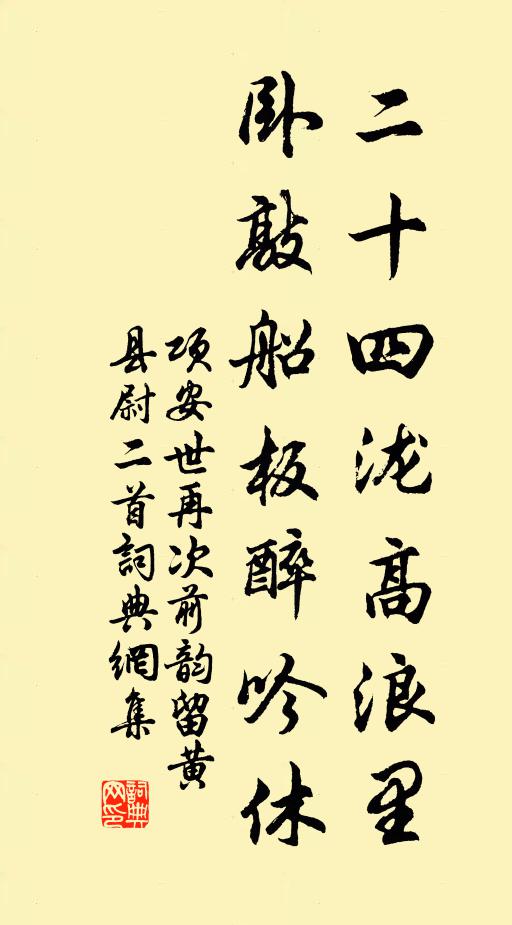 二十四泷高浪里
卧敲船板醉吟休
项安世再次前韵留黄
县尉二首詞典網集
詞典网印